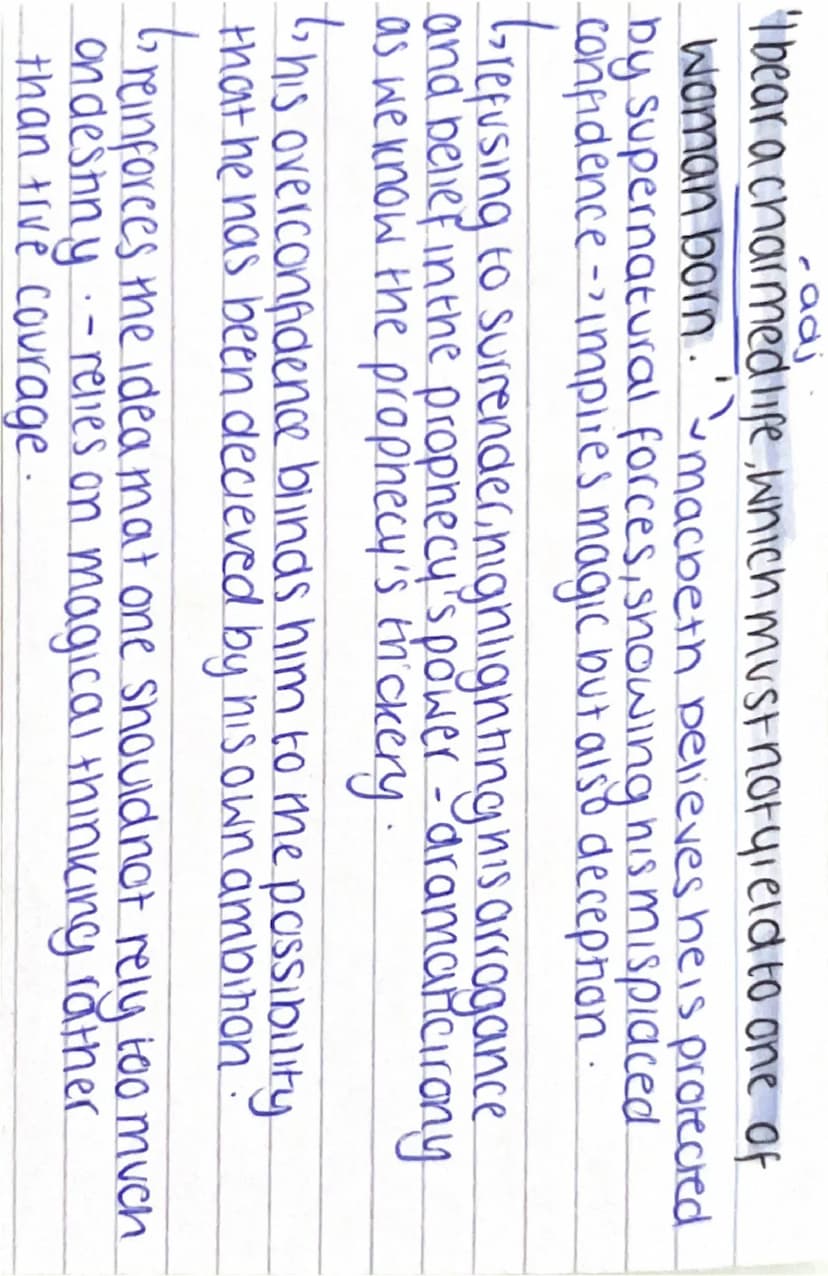 - adj
"I bear a charmed life, which must not yield to one of
woman born.") ~ macbeth believes he is protected
by supernatural forces, showing his misplaced
confidence -> implies magic but also deception.
↳ refusing to surrender, highlighting his arrogance
and belief in the prophecy's power - dramatic irony
as we know the prophecy's trickery.
↳ his overconfidence blinds him to the possibility
that he has been decieved by his own ambition.
↳ reinforces the idea that one should not rely too much
on destiny. - relies on magical thinking rather
than true courage.